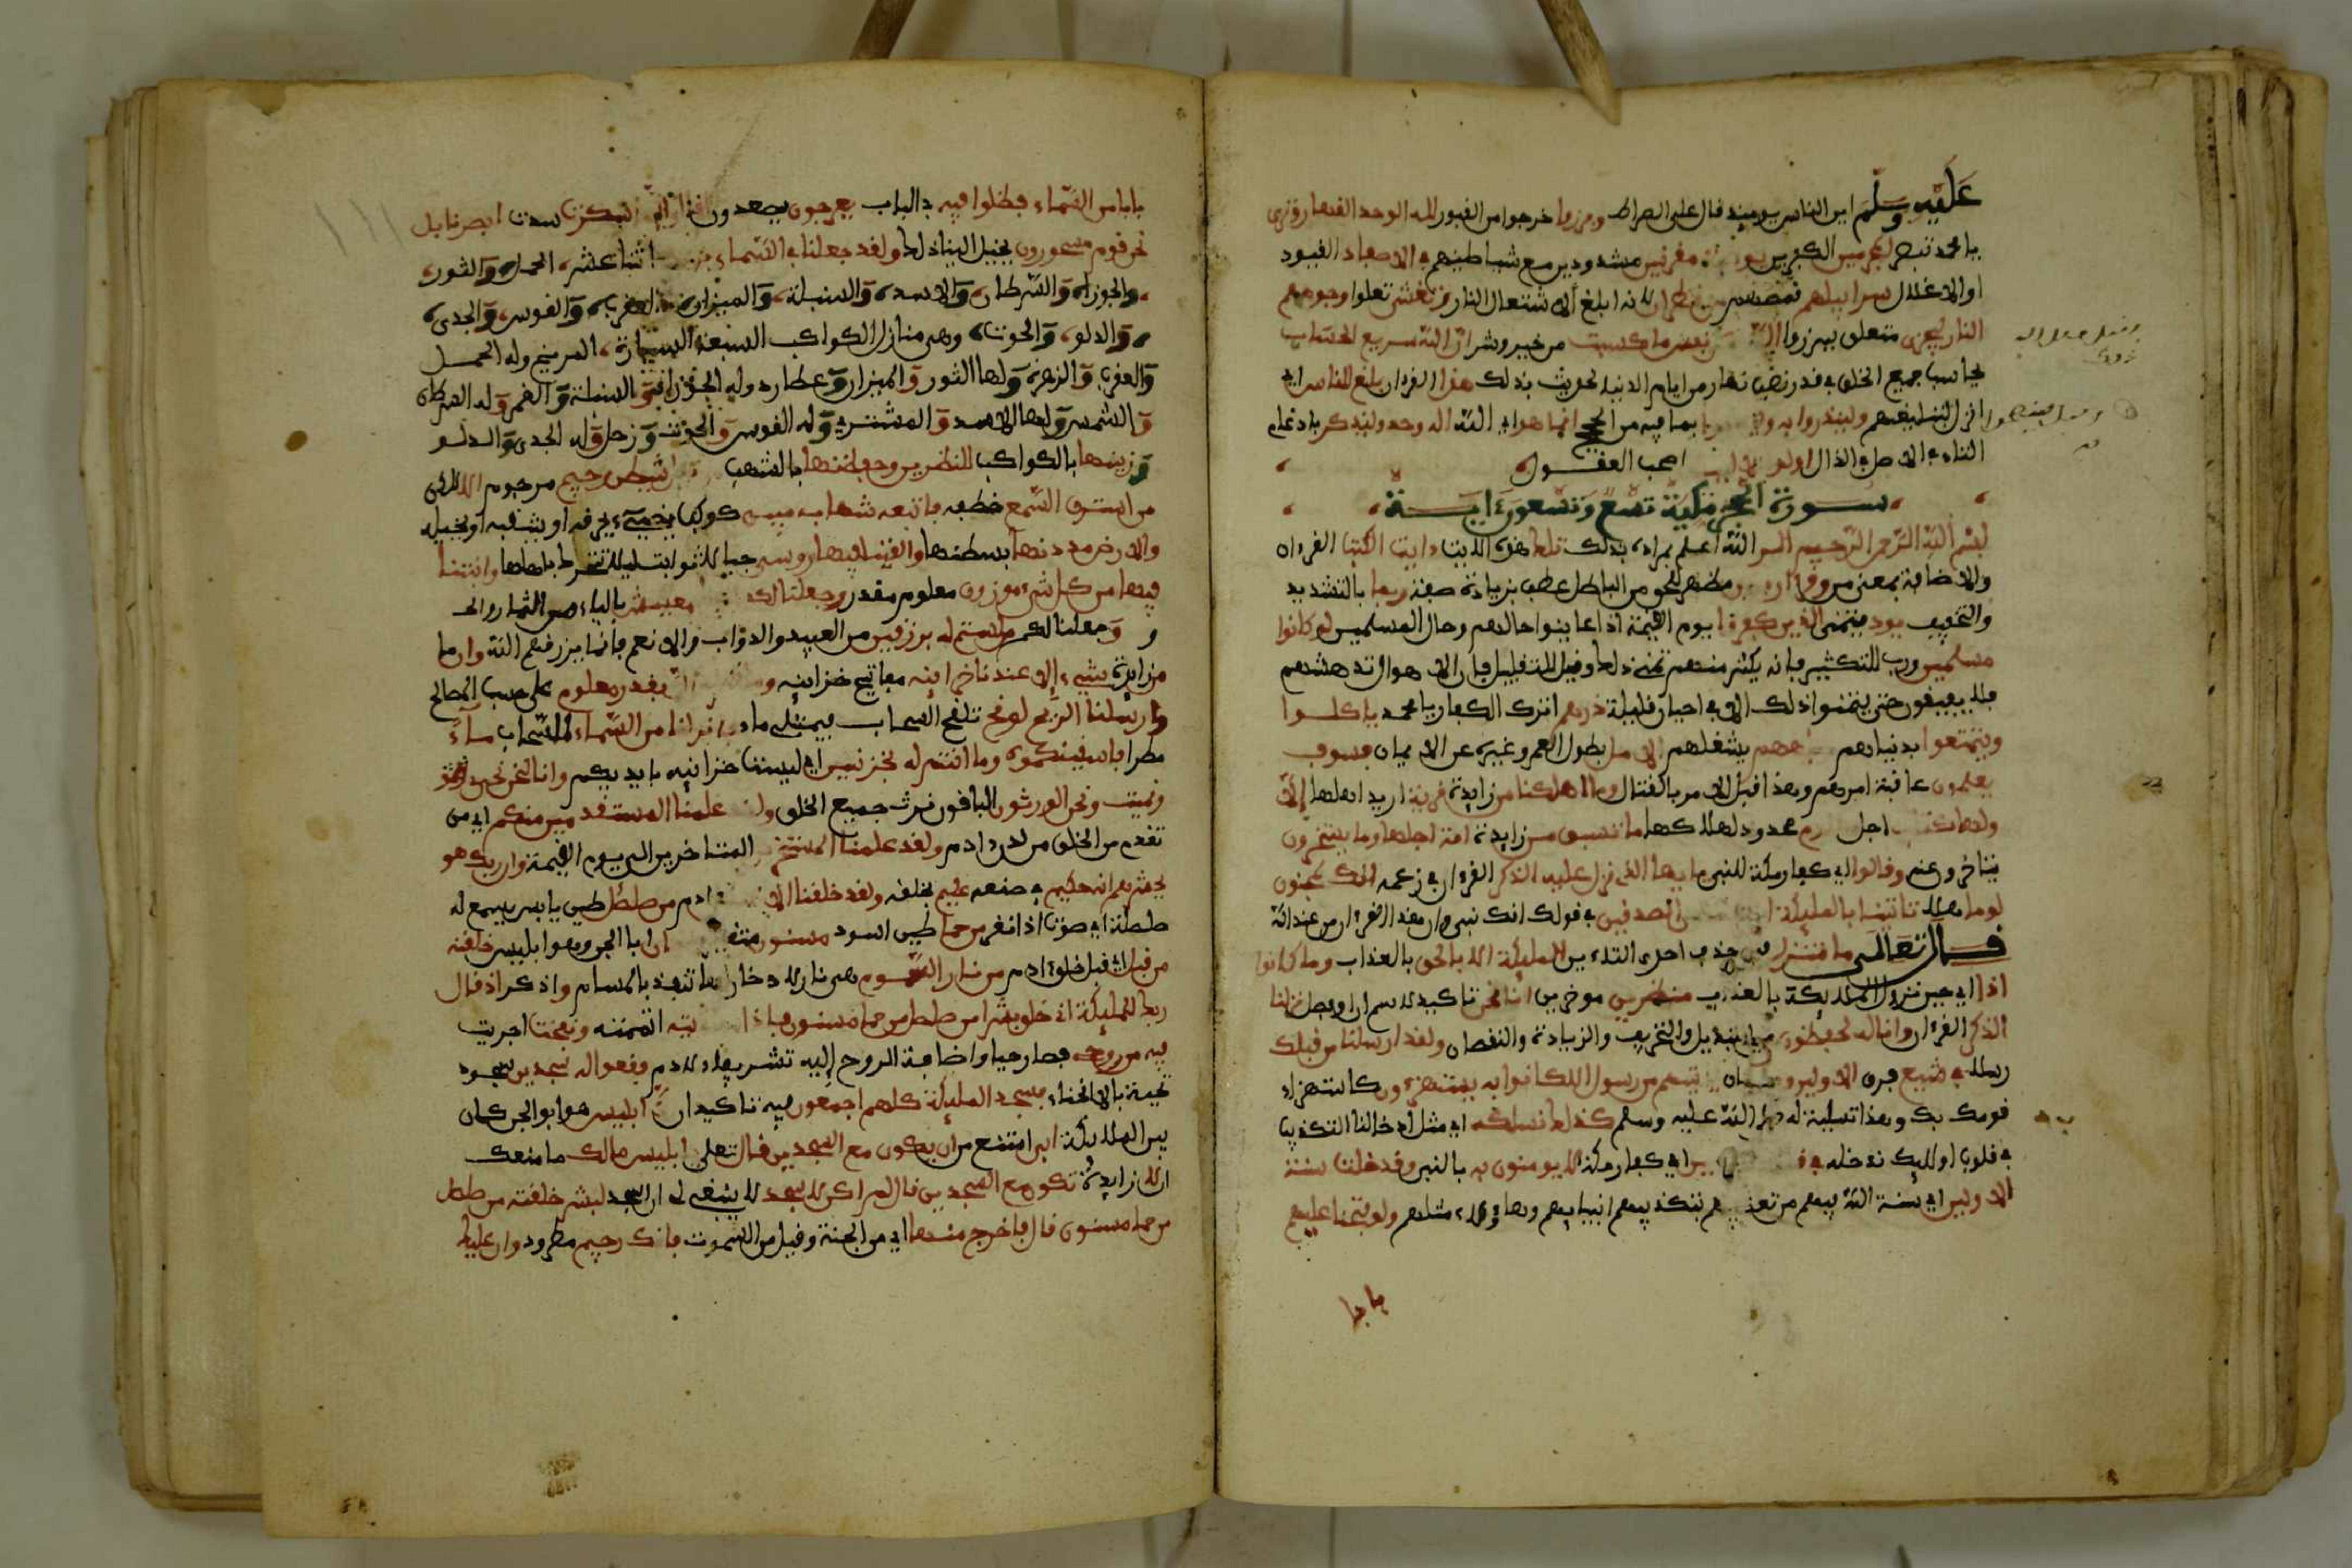 عليه وسلم اين الناس يوميذ قال على الصراط وبرزوا خرجوا من القبور لله الوحد القهار وترى
يا محمد تبصر المجرمين الكفرين مقرنين مشدودين مع شياطينهم في الاصفاد القيود
او الاغلال سرابيلهم قمصهم من قطران لانه ابلغ لاشتعال النار وتغشى تعلوا وجوههم
النار ليجزى متعلق ببرزوا الله نفس ما كسبت من خير وشر ان الله سريع الحساب
يحاسب جميع الخلق في قدر نصف نهار من ايام الدنيا لحديث بذلك هذا القرءان بلغ للناس اي
انزل لتبليغهم ولينذروا به بما فيه من الحجج انما هو اي الله اله وحد وليذكر بادغام
التاء في الاصل في الذال اولوا اصحب العقول
سورة الحجر مكية تسع وتسعون ءاية
بسم الله الرحمن الرحيم الر الله اعلم بمراده بذلك تلك هذه الايت ءايت الكتب القرءان
والاضافة بمعنى من وقرءان مظهر للحق من الباطل عطف بزيادة صفة ربما بالتشديد
والتخفيف يود يتمنى الذين كفروا يوم القيمة اذا عاينوا حالهم وحال المسلمين لو كانوا
مسلمين ورب للتكثير فانه يكثر منهم تمني ذلك وقيل للتقليل فان الاهوال تدهشهم
فلا يفيقون حتى يتمنوا ذلك الا في احيان قليلة ذرهم اترك الكفار يا محمد ياكلوا
ويتمتعوا بدنياهم يشغلهم الامل بطول العمر وغيره عن الايمان فسوف
يعلمون عاقبة امرهم وهذا قبل الامر بالقتال وما اهلكنا من زايدة قرية اريد اهلها الا
ولها كتب اجل محدود لهلاكها ما تسبق من زايدة امة اجلها وما يستخرون
يتاخرون عنه وقالوا اي كفار مكة للنبي يايها الذي نزل عليه الذكر القرءان في زعمه انك لمجنون
لوما هلا تاتينا بالمليكة الصدقين في قولك انك نبي وان هذا القرءان من عند الله
قال تعالى ما تتنزل فيه حذف احدى التاءين المليكة الا بالحق بالعذاب وما كانوا
اذا اي حين نزول المليكة بالعذاب منظرين موخرين انا نحن تاكيد لاسم ان او فصل نزلنا
الذكر القرءان وانا له لحفظون من التبديل والتحريف والزيادة والنقصان ولقد ارسلنا من قبلك
رسلا في شيع فرق الاولين وما كان ياتيهم من رسول الا كانوا به يستهزءون كاستهزاء
قومك بك وهذا تسلية له صلى الله عليه وسلم كذلك نسلكه اي مثل ادخالنا التكذيب
في قلوب اوليك ندخله في اي كفار مكة لا يومنون به بالنبي وقد خلت سنة
الاولين اي سنة الله فيهم من تعذيبهم بتكذيبهم انبياءهم وهاولاء مثلهم ولو فتحنا عليهم
بابا
بابا من السماء فظلوا فيه في الباب يعرجون يصعدون سكرت سدت ابصرنا بل
نحن قوم مسحورون يخيل الينا ذلك ولقد جعلنا في السماء اثنا عشر الحمل والثور
والجوزاء والسرطان والاسد والسنبلة والميزان والعقرب والقوس والجدي
والدلو والحوت وهي منازل الكواكب السبعة السيارة المريخ وله الحمل
والعقرب والزهرة ولها الثور والميزان وعطارد وله الجوزاء والسنبلة والقمر وله السرطان
والشمس ولها الاسد والمشتري وله القوس والحوت وزحل وله الجدي والدلو
وزينها بالكواكب للنظرين وحفظنها بالشهب شيطن رجيم مرجوم الا لكن
من استرق السمع خطفه فاتبعه شهاب مبين كوكب يضيء يحرقه او يثقبه او يخبله
والارض مددنها بسطنها والقينا فيها روسي جبالا ثوابت ليلا تتحرك باهلها وانبتنا
فيها من كل شيء موزون معلوم مقدر وجعلنا لكم معيش بالياء من الثمار والحبوب
و وجعلنا لكم من لستم له برزقين من العبيد والدواب والانعم فانما يرزقهم الله وان ما
من زايدة شيء الا عندنا خزاينه مفاتيح خزاينه بقدر معلوم على حسب المصالح
وارسلنا الريح لوقح تلقح السحاب فيمتلي ماء فانزلنا من السماء السحاب ماء
مطرا فاسقينكموه وما انتم له بخزنين اي ليست خزاينه بايديكم وانا لنحن نحي
ونميت ونحن الورثون الباقون نرث جميع الخلق ولقد علمنا المستقدمين منكم اي من
تقدم من الخلق من لدن ءادم ولقد علمنا المستخرين المتاخرين الى يوم القيمة وان ربك هو
يحشرهم انه حكيم في صنعه عليم بخلقه ولقد خلقنا الانسن ءادم من صلصل طين يابس يسمع له
صلصلة اي صوت اذا نقر من حما طين اسود مسنون متغير ابا الجن وهو ابليس خلقنه
من قبل اي قبل خلق ءادم من نار السموم هي نار لا دخان لها تنفذ بالمسام واذكر اذ قال
ربك للمليكة اني خلق بشرا من صلصل من حما مسنون فاذا سويته اتممته ونفخت اجريت
فيه من روحي فصار حيا واضافة الروح اليه تشريفا لادم فقعوا له سجدين سجود
تحية بالانحناء فسجد المليكة كلهم اجمعون فيه تاكيدان الا ابليس هو ابو الجن كان
بين المليكة ابى امتنع من ان يكون مع السجدين قال تعلى يابليس ما لك ما منعك
الا زايدة تكون مع السجدين قال لم اكن لاسجد لا ينبغي لي ان اسجد لبشر خلقته من صلصل
من حما مسنون قال فاخرج منها اي من الجنة وقيل من السموت فانك رجيم مطرود وان عليك